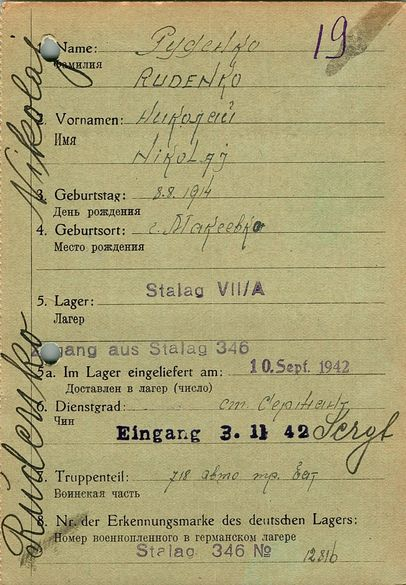 Rudenko Nikolaj
19
1. Name: Руденко
Фамилия
RUDENKO
2. Vornamen: Николай
Имя
NikoLaj
3. Geburtstag: 8.8.1914
День рождения
4. Geburtsort: г. Макеевка
Место рождения
5. Lager: Stalag VII/A
Лагерь
Zugang aus Stalag 346
5a. Im Lager eingeliefert am: 10. Sept. 1942
Доставлен в лагерь (число)
6. Dienstgrad: ст. сержант
Чин
Eingang 3. 11 42 Sergt
Truppenteil: 718 авто тр. бат
Воинская часть
8. Nr. der Erkennungsmarke des deutschen Lagers:
Номер военнопленного в германском лагере
Stalag 346 №